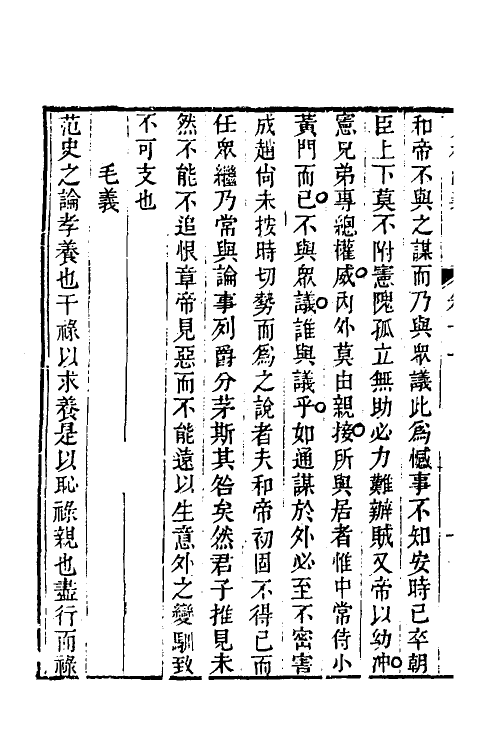 和帝不與之謀而乃與眾議此為憾事不知安時已卒朝
臣上下莫不附憲隗孤立無助必力難辦賊又帝以幼冲
憲兄弟專總權威內外莫由親接所與居者惟中常侍小
黃門而已不與眾議誰與議乎如通謀於外必至不密害
成趙尙未按時切勢而為之說者夫和帝初固不得已而
任眾繼乃常與論事列爵分茅斯其咎矣然君子推見未
然不能不追恨章帝見惡而不能遠以生意外之變馴致
不可支也
毛義
范史之論孝養也干祿以求養是以恥祿親也盡行而祿